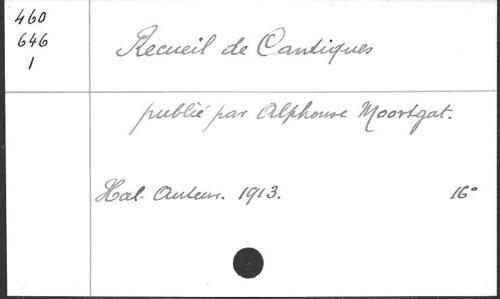 460
646
1
Recueil de Cantiques
publié par Alphonse Moortgat.
Hal. Auteur. 1913. 16°